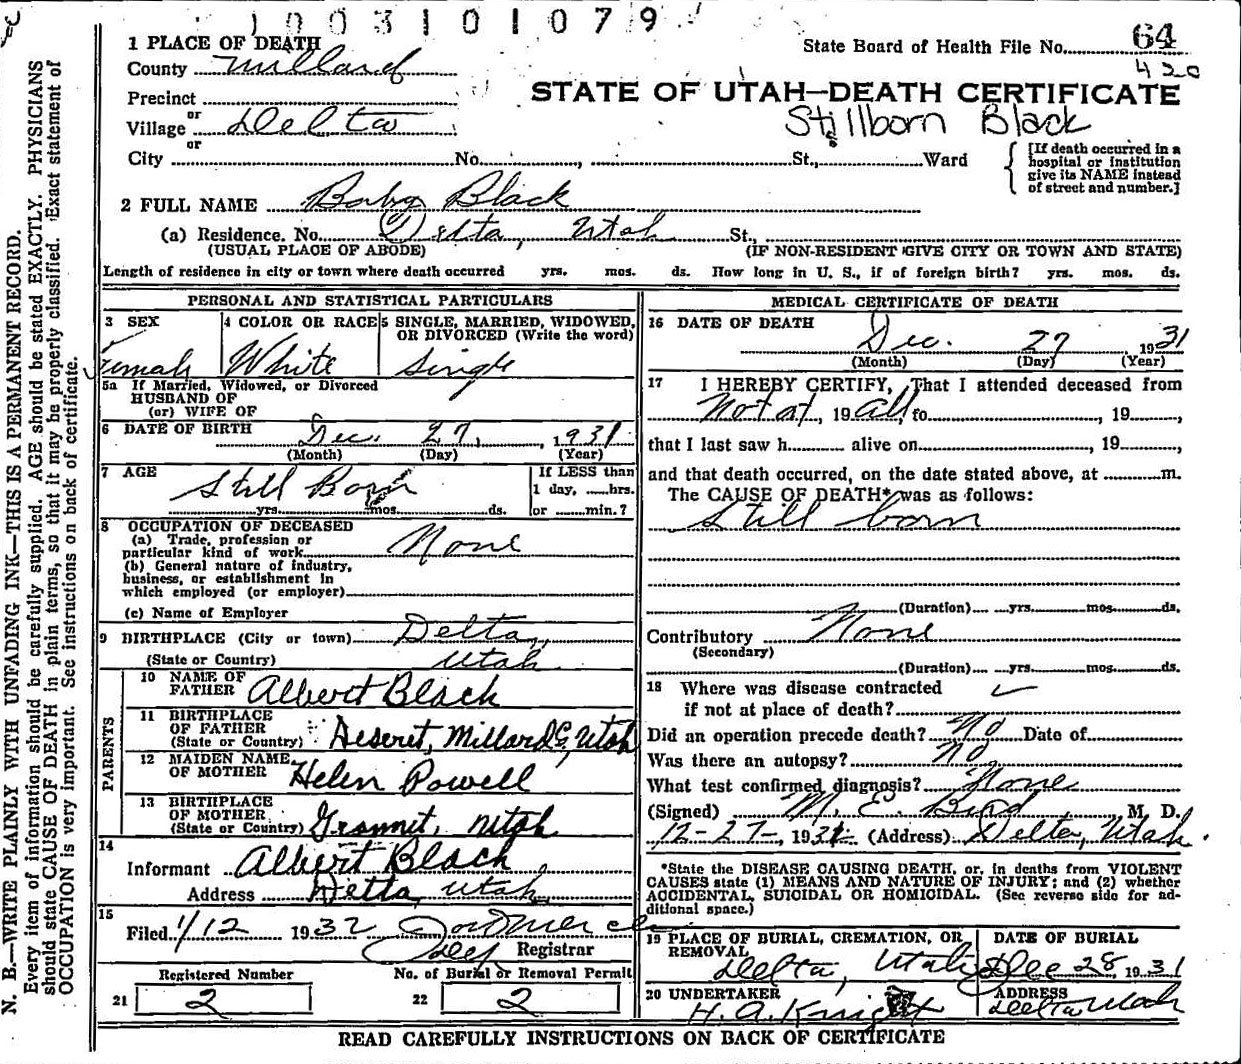 1003101079
1 PLACE OF DEATH
State Board of Health File No. 64
420
County Millard
STATE OF UTAH—DEATH CERTIFICATE
Precinct
or
Village Delta
Stillborn Black
or
City No. , St., Ward
[If death occurred in a hospital or institution give its NAME instead of street and number.]
2 FULL NAME Baby Black
(a) Residence. No. Delta, Utah St.,
(USUAL PLACE OF ABODE) (IF NON-RESIDENT GIVE CITY OR TOWN AND STATE)
Length of residence in city or town where death occurred yrs. mos. ds. How long in U. S., if of foreign birth? yrs. mos. ds.
PERSONAL AND STATISTICAL PARTICULARS
3 SEX
Female
4 COLOR OR RACE
White
5 SINGLE, MARRIED, WIDOWED, OR DIVORCED (Write the word)
Single
5a If Married, Widowed, or Divorced
HUSBAND OF
(or) WIFE OF
6 DATE OF BIRTH Dec. 27, 1931
(Month) (Day) (Year)
7 AGE Still Born
yrs. mos. ds.
If LESS than
1 day, hrs.
or min.?
8 OCCUPATION OF DECEASED
(a) Trade, profession or
particular kind of work None
(b) General nature of industry,
business, or establishment in
which employed (or employer)
(c) Name of Employer
9 BIRTHPLACE (City or town) Delta,
(State or Country) Utah
PARENTS
10 NAME OF FATHER Albert Black
11 BIRTHPLACE OF FATHER (State or Country) Deseret, Millard Co, Utah
12 MAIDEN NAME OF MOTHER Helen Powell
13 BIRTHPLACE OF MOTHER (State or Country) Utah
14
Informant Albert Black
Address Delta, Utah
15
Filed 1/12 1932
Dep Registrar
Registered Number
21 2
No. of Burial or Removal Permit
22 2
MEDICAL CERTIFICATE OF DEATH
16 DATE OF DEATH
Dec. 27 1931
(Month) (Day) (Year)
17 I HEREBY CERTIFY, That I attended deceased from
Not at, 19 All to , 19 ,
that I last saw h alive on , 19 ,
and that death occurred, on the date stated above, at m.
The CAUSE OF DEATH* was as follows:
Still born
(Duration) yrs. mos. ds.
Contributory None
(Secondary)
(Duration) yrs. mos. ds.
18 Where was disease contracted
if not at place of death?
Did an operation precede death? No Date of
Was there an autopsy? No
What test confirmed diagnosis? None
(Signed) M. E. Bird M. D.
12-27-, 1931 (Address) Delta, Utah.
*State the DISEASE CAUSING DEATH, or, in deaths from VIOLENT
CAUSES state (1) MEANS AND NATURE OF INJURY; and (2) whether
ACCIDENTAL, SUICIDAL OR HOMICIDAL. (See reverse side for ad-
ditional space.)
19 PLACE OF BURIAL, CREMATION, OR REMOVAL
Delta, Utah
DATE OF BURIAL
Dec 28 1931
20 UNDERTAKER
H. A. Knight
ADDRESS
Delta Utah
READ CAREFULLY INSTRUCTIONS ON BACK OF CERTIFICATE
N. B.—WRITE PLAINLY WITH UNFADING INK—THIS IS A PERMANENT RECORD.
Every item of information should be carefully supplied. AGE should be stated EXACTLY. PHYSICIANS
should state CAUSE OF DEATH in plain terms, so that it may be properly classified. Exact statement of
OCCUPATION is very important. See instructions on back of certificate.